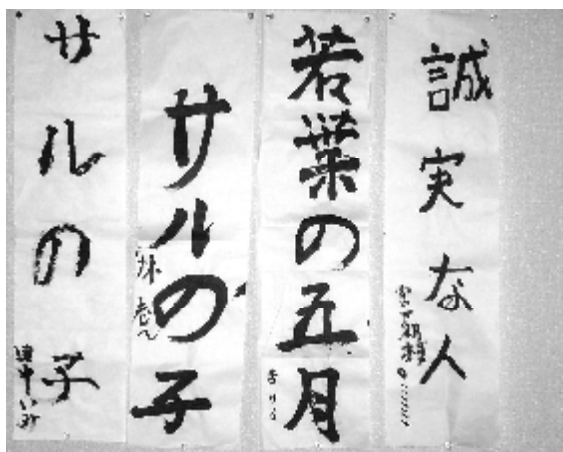 誠実な人
若葉の五月
サルの子
サルの子